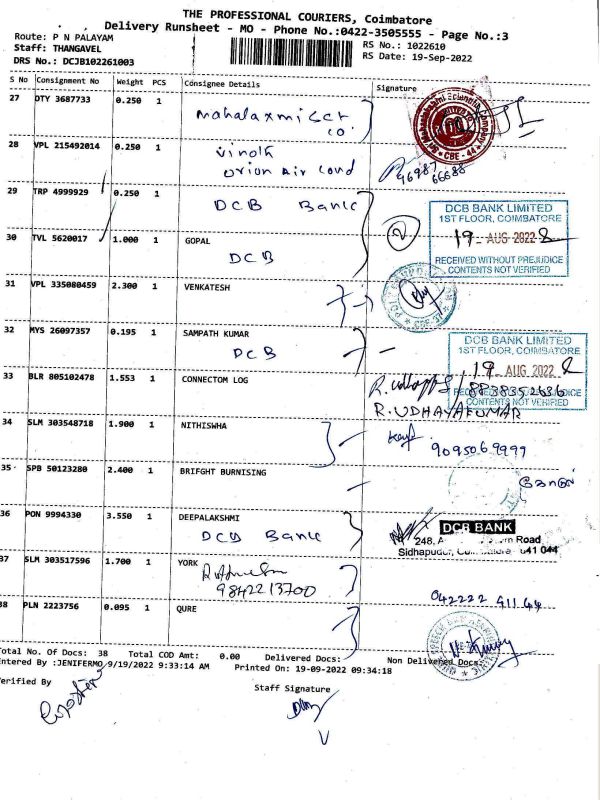 THE PROFESSIONAL COURIERS, Coimbatore
Delivery Runsheet - MO - Phone No.:0422-3505555 - Page No.:3
Route: P N PALAYAM
Staff: THANGAVEL
DRS No.: DCJB102261003
RS No.: 1022610
RS Date: 19-Sep-2022
S No Consignment No Weight PCS Consignee Details Signature
27 DTY 3687733 0.250 1
Mahalaxmi
28 VPL 215492014 0.250 1
Vinoth
Orion Air Cond
96987
66688
29 TRP 4999929 0.250 1
DCB Bank
DCB BANK LIMITED
1ST FLOOR, COIMBATORE
19 AUG 2022
RECEIVED WITHOUT PREJUDICE
CONTENTS NOT VERIFIED
30 TVL 5620017 1.000 1 GOPAL
DCB
31 VPL 335080459 2.300 1 VENKATESH
32 MYS 26097357 0.195 1 SAMPATH KUMAR
DCB
DCB BANK LIMITED
1ST FLOOR, COIMBATORE
19 AUG 2022
CONTENTS NOT VERIFIED
33 BLR 805102478 1.553 1 CONNECTOM LOG
8838352636
R.UDHAYAKUMAR
34 SLM 303548718 1.900 1 NITHISWHA
9095069999
35 SPB 50123280 2.400 1 BRIFGHT BURNISING
36 PON 9994330 3.550 1 DEEPALAKSHMI
DCB Bank
DCB BANK
248, Road
Sidhapudur, 641 044
37 SLM 303517596 1.700 1 YORK
9842213700
38 PLN 2223756 0.095 1 QURE
Total No. Of Docs: 38 Total COD Amt: 0.00 Delivered Docs: Non Delivered Docs:
Entered By :JENIFERMO 9/19/2022 9:33:14 AM Printed On: 19-09-2022 09:34:18
Verified By
Staff Signature